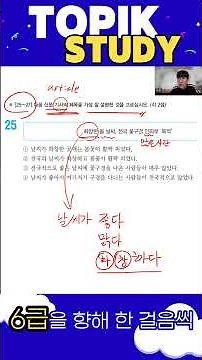 TOPIK
STUDY
article
※ [25~27] 다음 신문 기사의 제목을 가장 잘 설명한 것을 고르십시오. (각 2점)
25
화창한 봄 날씨, 전국 꽃구경 인파로 '북적'
① 날씨가 화창한 곳에는 봄꽃이 활짝 피었다.
② 전국의 날씨가 화창하고 봄꽃이 활짝 피었다.
③ 전국적으로 좋은 날씨에 꽃구경을 나온 사람들이 매우 많았다.
④ 날씨가 좋아서 여기저기 구경을 다니는 사람들이 많아졌다.
날씨가 좋다
맑다
화창하다
6급을 향해 한 걸음씩